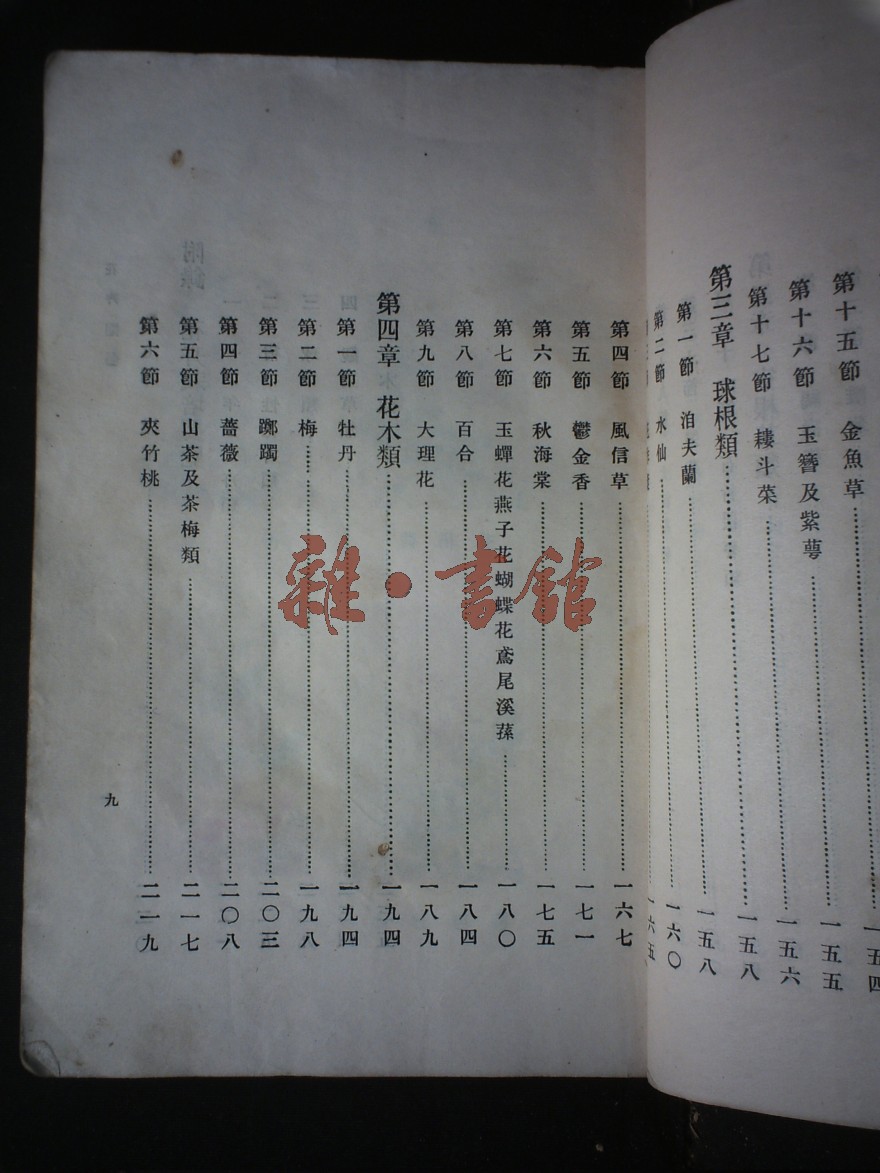 第十五節 金魚草……一五四
第十六節 玉簪及紫萼……一五五
第十七節 耬斗菜……一五六
第三章 球根類……一五八
第一節 泊夫蘭……一五八
第二節 水仙……一六〇
一六五
第四節 風信草……一六七
第五節 鬱金香……一七一
第六節 秋海棠……一七五
第七節 玉蟬花燕子花蝴蝶花鳶尾溪蓀……一八〇
第八節 百合……一八四
第九節 大理花……一八九
第四章 花木類……一九四
第一節 牡丹……一九四
第二節 梅……一九八
第三節 躑躅……二〇三
第四節 薔薇……二〇八
第五節 山茶及茶梅類……二一七
第六節 夾竹桃……二一九
九
雜·書館